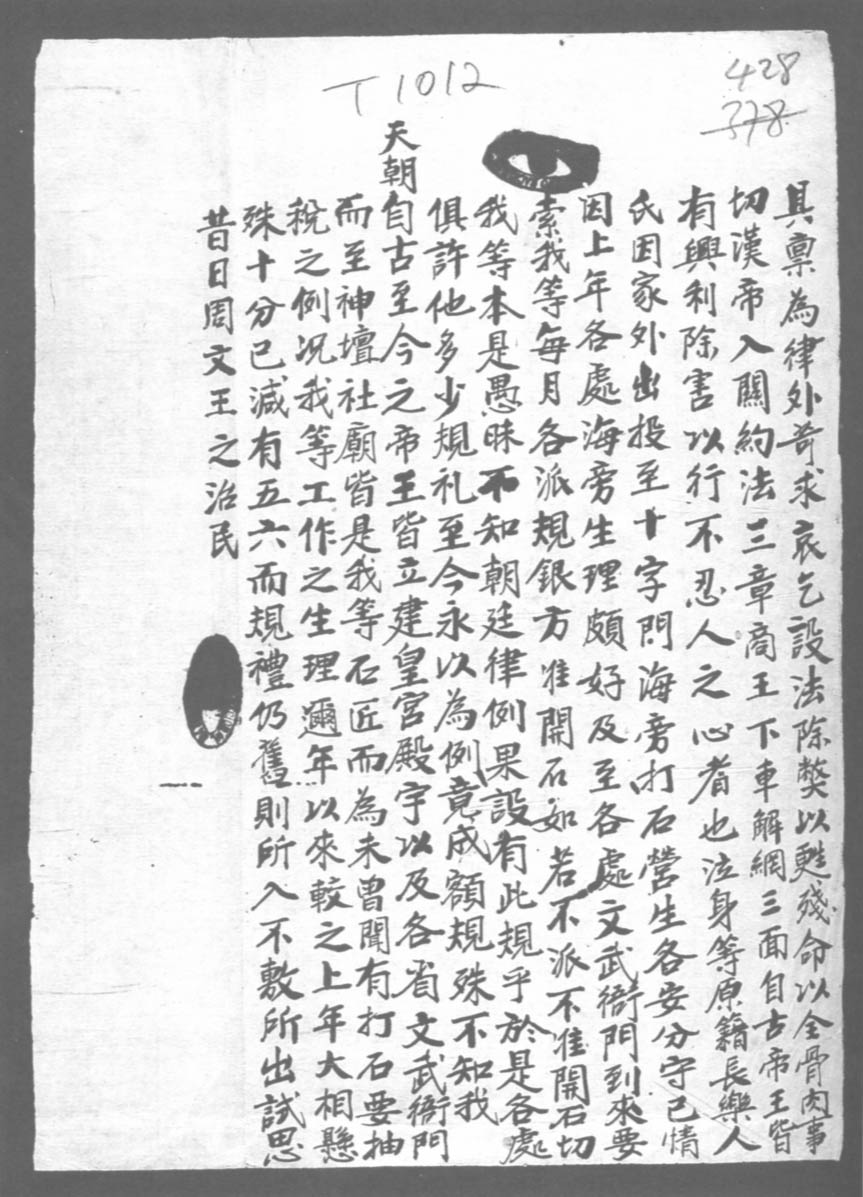 T 1012
428
378
具禀為律外苛求哀乞設法除獘以甦殘命以全骨肉事
切漢帝入關約法三章商王下車解網三面自古帝王皆
有興利除害以行不忍人之心者也泣身等原籍長樂人
氏因家外出投至十字門海旁打石營生各安分守己情
因上年各處海旁生理頗好及至各處文武衙門到來要
索我等每月各派規銀方准開石如若不派不准開石切
我等本是愚昧不知朝廷律例果設有此規乎於是各處
俱許他多少規礼至今永以為例竟成額規殊不知我
天朝自古至今之帝王皆立建皇宮殿宇以及各省文武衙門
而至神壇社廟皆是我等石匠而為未曾聞有打石要抽
稅之例况我等工作之生理邇年以來較之上年大相懸
殊十分已減有五六而規禮仍舊則所入不敷所出試思
昔日周文王之治民